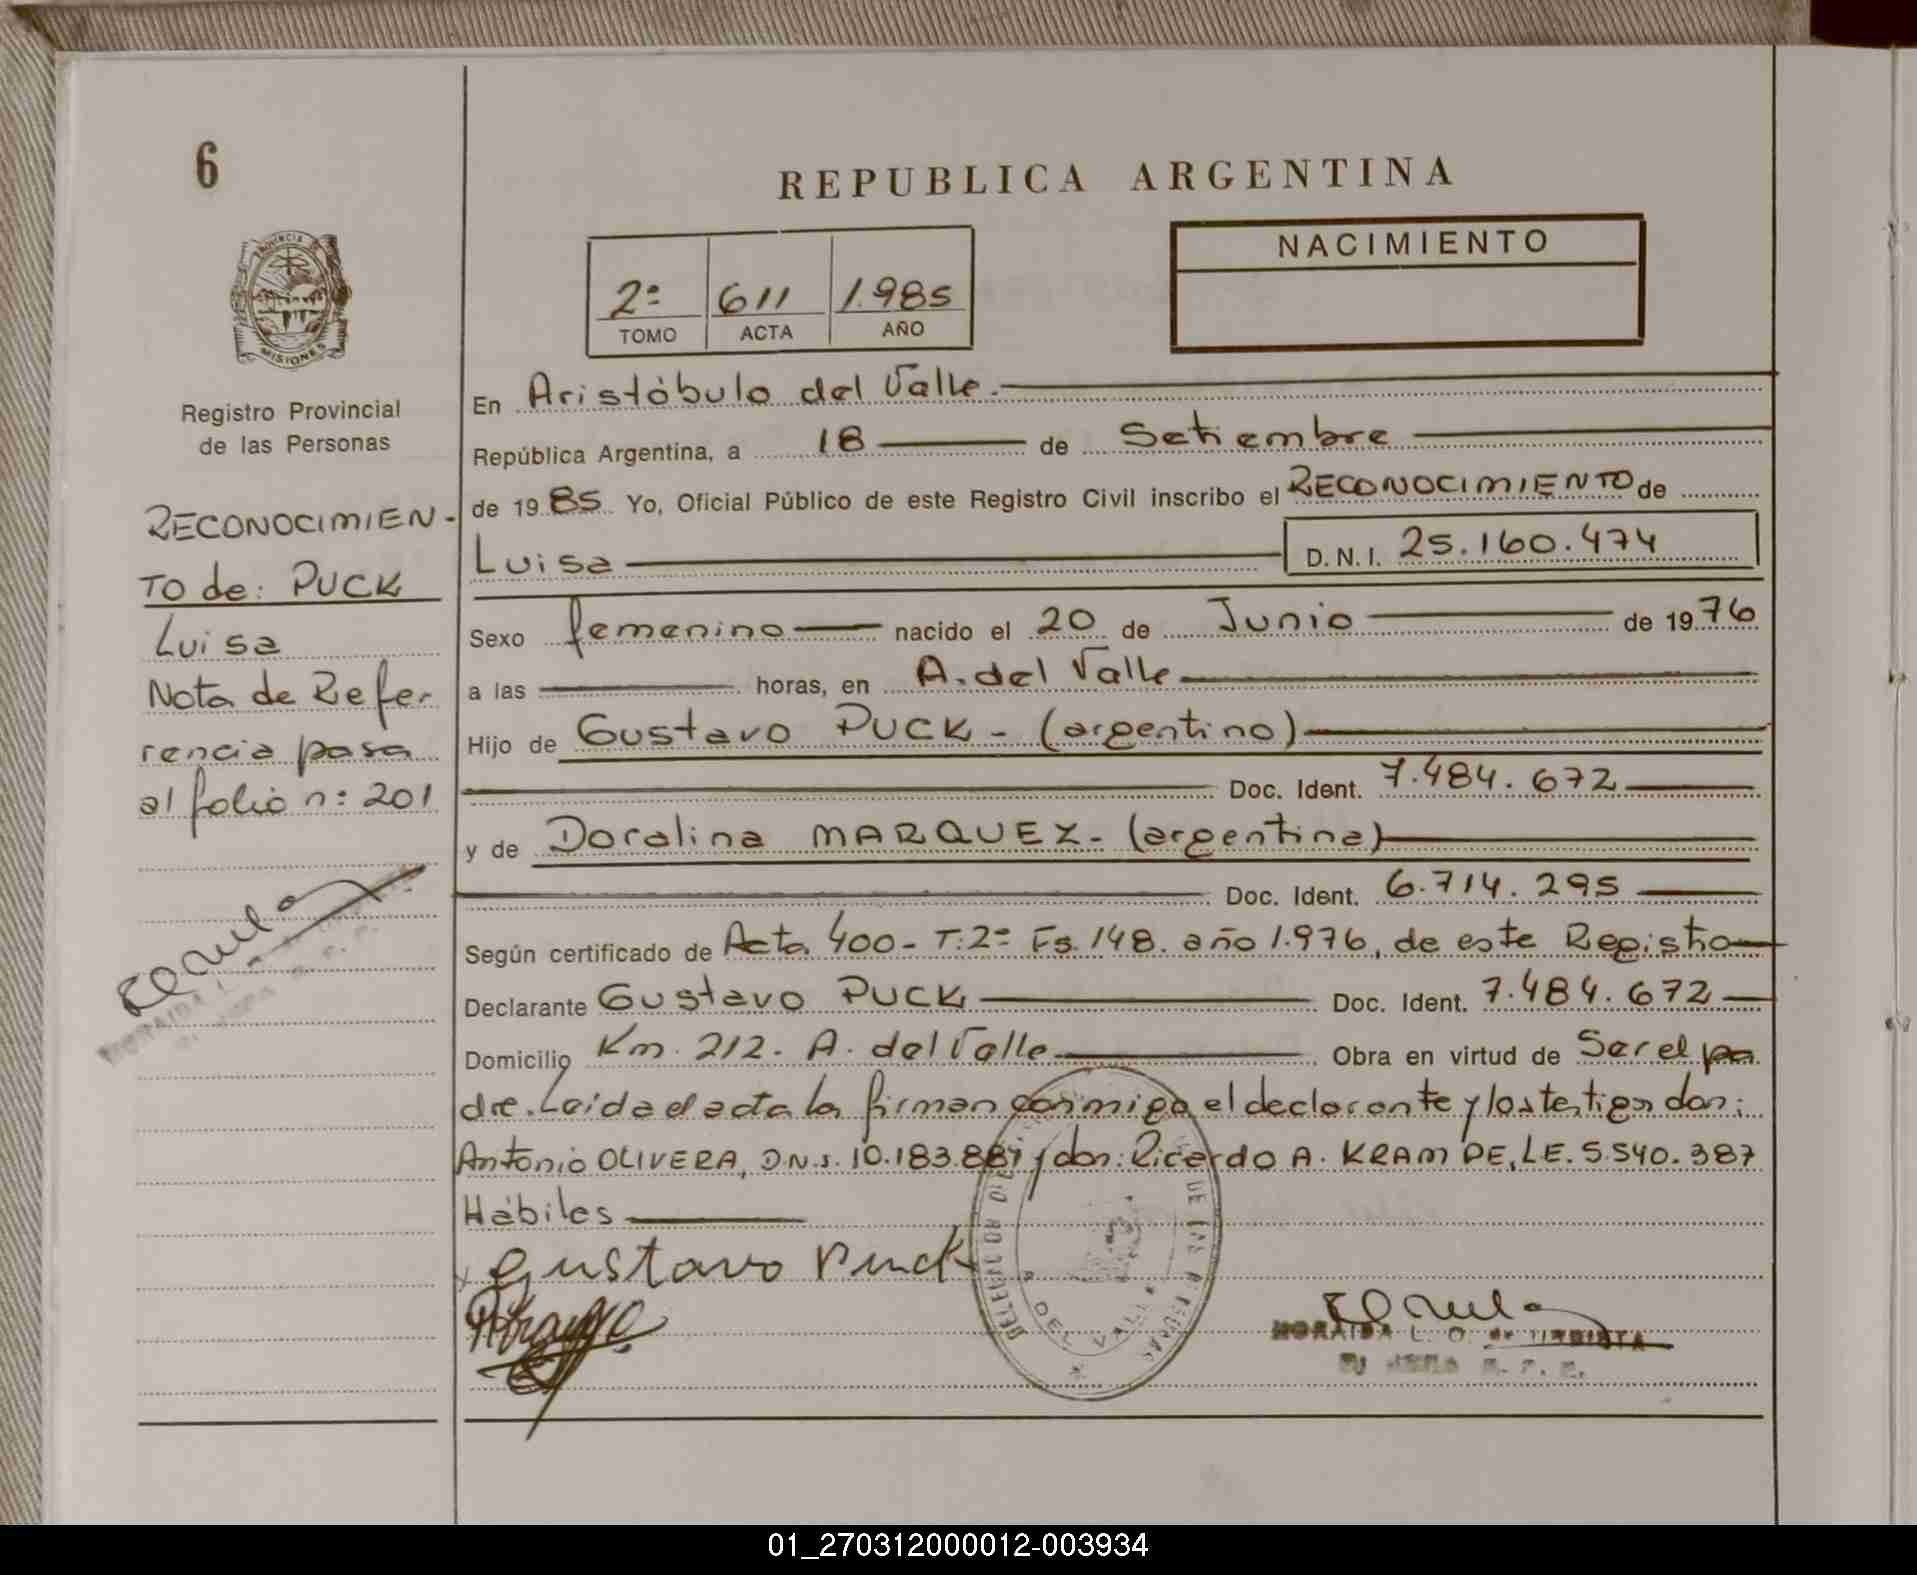 6
REPUBLICA ARGENTINA
NACIMIENTO
2º 611 1.985
TOMO ACTA AÑO
PROVINCIA DE
MISIONES
Registro Provincial
de las Personas
RECONOCIMIEN-
TO de: PUCK
Luisa
Nota de Refer
rencia pasa
al folio nº 201
En Aristóbulo del Valle.
República Argentina, a 18 de Setiembre
de 1985 Yo, Oficial Público de este Registro Civil inscribo el RECONOCIMIENTO de
Luisa D.N.I. 25.160.474
Sexo femenino nacido el 20 de Junio de 1976
a las horas, en A. del Valle
Hijo de Gustavo PUCK - (argentino)
Doc. Ident. 7.484.672
y de Doralina MARQUEZ - (argentina)
Doc. Ident. 6.714.295
Según certificado de Acta 400 - T: 2º Fs. 148. año 1.976, de este Registro
Declarante Gustavo PUCK Doc. Ident. 7.484.672
Domicilio Km. 212. A. del Valle Obra en virtud de Ser el pa
dre. Leida el acta la firman conmigo el declarante y los testigos don:
Antonio OLIVERA, D.N.I. 10.183.887 y don: Ricardo A. KRAMPE, L.E. 5.540.387
Hábiles
Gustavo Puck
DEL VALLE
MORAIDA L. O. de
01_270312000012-003934